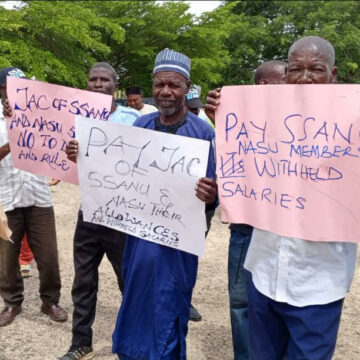 JAC OF SSANU
AND NASU S
NO TO
AND RULE
PAY JAC
OF
SSANU &
NASU THEIR
ALLOWANCES
AND WITHHELD
SALARIES
PAY SSANU
NASU MEMBERS
WITHHELD
SALARIES